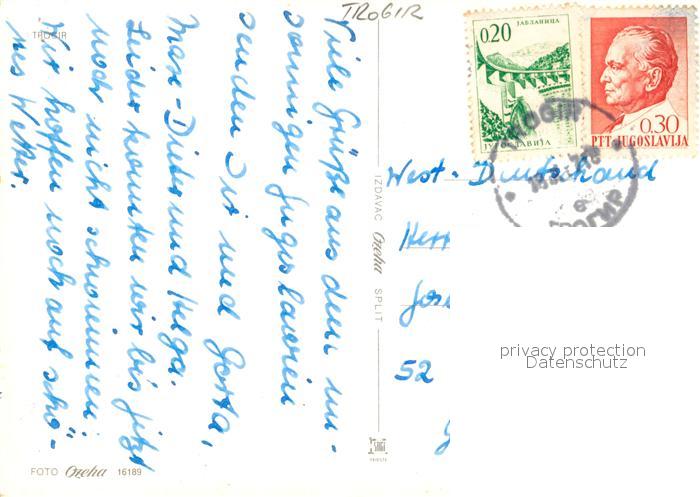 TROGIR
TROGIR
Viele Grüße aus dem un-
sonnigen Jugoslawien
senden Dir und
Max-Dieter und Helga.
Leider konnten wir bis jetzt
noch nicht schwimmen.
Wir hoffen noch auf schö-
nes Wetter.
FOTO Ozeha 16189
IZDAVAČ Ozeha SPLIT
0.20
ЈАБЛАНИЦА
ЈУГОСЛАВИЈА
0.30
PTT JUGOSLAVIJA
TROGIR
West-Deutschland
Herr
52
privacy protection
Datenschutz